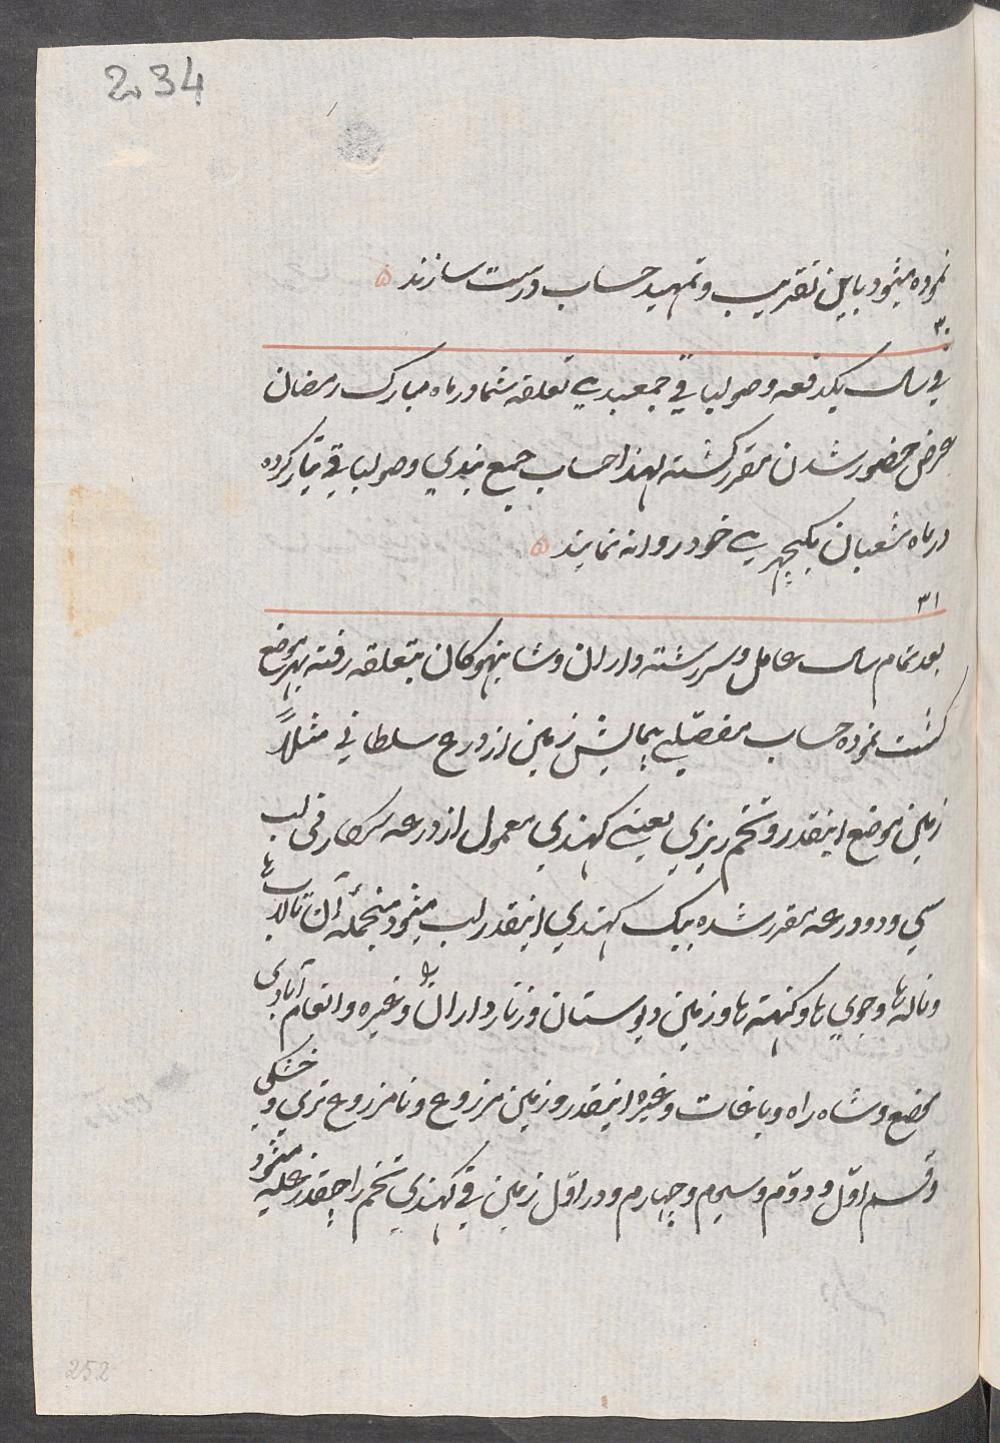 234
نموده میشود باین تقریب و تمهید حساب درست سازند ۵
۳۰
فی سال یکدفعه وصولباقی جمعبندی تعلقه شما در ماه مبارک رمضان
عرض حضور شدن مقرر گشته لهذا حساب جمع بندی وصولباقی تیار کرده
در ماه شعبان بکچهری خود روانه نمایند ۵
۳۱
بعد تمام سال عامل و سررشته داران و شانبهوکان بتعلقه رفته بهر موضع
گشت نموده حساب مفصّلی پیمایش زمین از درع سلطانی مثلاً
زمین موضع اینقدر و تخم ریزی یعنی کهندی معمول از درعه سرکار فی لب
سی و دو درعه مقرر شده بیک کهندی اینقدر لب میشود منجمله آن تالاب ها
و ناله ها و جوی ها و کنهته ها و زمین دیوستان و زنارداران ها و غیره و انعام آبادی
موضع و شاه راه و باغات و غیره اینقدر و زمین مزروع و نامزروع تری و خشکی
و قسم اوّل و دوّم و سیوم و چهارم و در اوّل زمین فی کهندی تخم را چقدر غله میشود
252